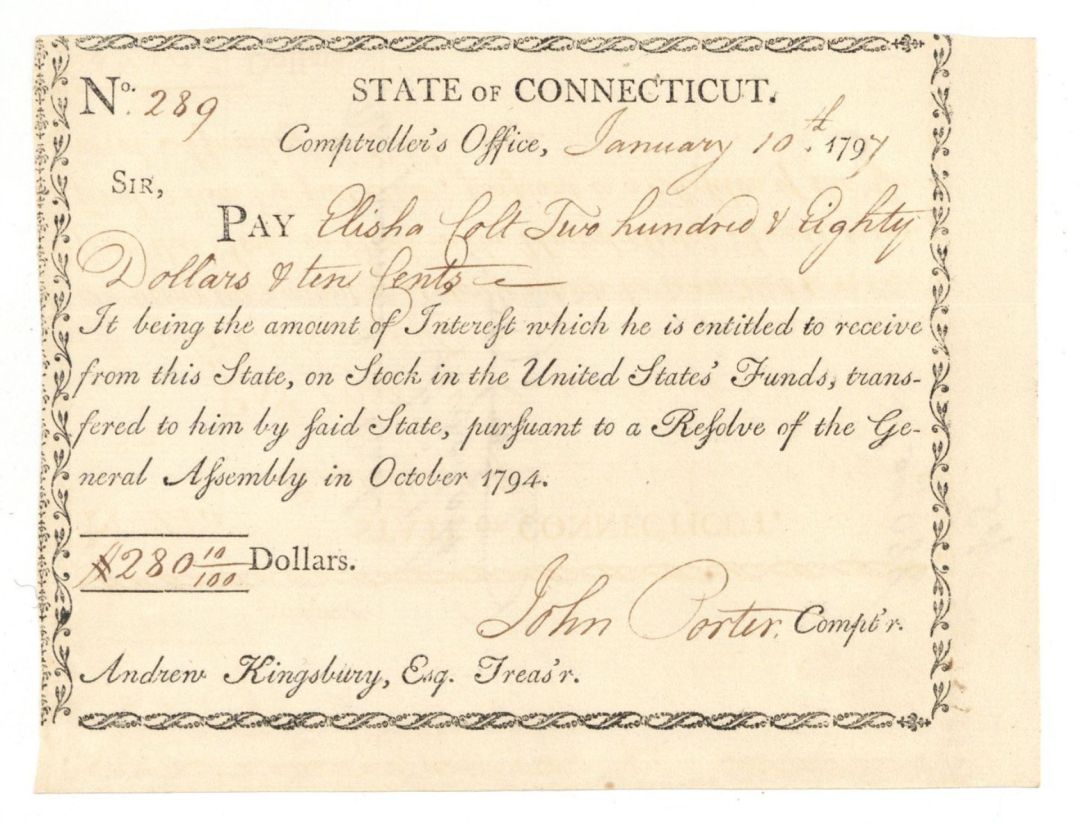 No. 289 STATE OF CONNECTICUT.
Comptroller's Office, January 10th. 1797
SIR,
PAY Elisha Colt Two hundred & Eighty
Dollars & ten Cents
It being the amount of Intereſt which he is entitled to receive
from this State, on Stock in the United States' Funds, trans-
fered to him by ſaid State, purſuant to a Reſolve of the Ge-
neral Aſſembly in October 1794.
$280 10/100 Dollars.
John Porter, Compt'r.
Andrew Kingsbury, Esq. Treas'r.